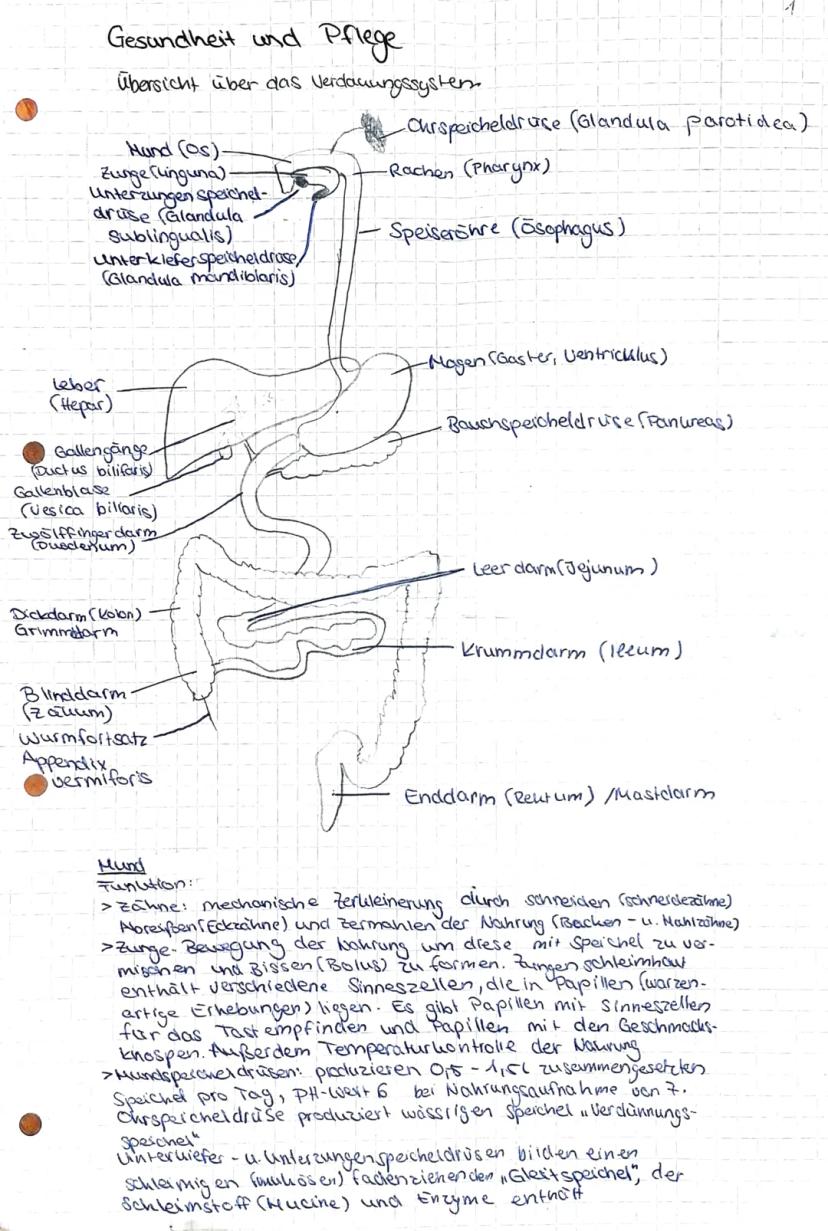 1
Gesundheit und Pflege
Übersicht über das Verdauungssystem
Ohrspeicheldrüse (Glandula parotidea)
Mund (OS)
Zunge (Linguna)
Rachen (Pharynx)
Unterzungenspeichel-
drüse (Glandula
sublingualis)
Speiseröhre (Ösophagus)
Unterkieferspeicheldrüse
(Glandula mandiblaris)
Magen (Gaster, Ventricklus)
Leber
(Hepar)
Bauchspeicheldrüse (Pankreas)
Gallengänge
(Ductus bilifaris)
Gallenblase
(Vesica biliaris)
Zwölffingerdarm
(Duodenum)
Leerdarm (Jejunum)
Dickdarm (Kolon)
Grimmdarm
Krummdarm (Ileum)
Blinddarm
(Zäkum)
Wurmfortsatz
Appendix
vermiforis
Enddarm (Rektum) / Mastdarm
Mund
Funktion:
> Zähne: mechanische Zerkleinerung durch schneiden (schneidezähne)
Abreißen (Eckzähne) und zermahlen der Nahrung (Backen- u. Mahlzähne)
> Zunge- Bewegung der Nahrung um diese mit Speichel zu ver-
mischen und Bissen (Bolus) zu formen. Zungenschleimhaut
enthält verschiedene Sinneszellen, die in Papillen (warzen-
artige Erhebungen) liegen. Es gibt Papillen mit Sinneszellen
für das Tastempfinden und Papillen mit den Geschmacks-
knospen. Außerdem Temperaturkontrolle der Nahrung
> Mundspeicheldrüsen: produzieren 0,5 - 1,5l zusammengesetzten
Speichel pro Tag, PH-Wert 6 bei Nahrungsaufnahme von 7.
Ohrspeicheldrüse produziert wässrigen Speichel „Verdünnungs-
speichel"
Unterkiefer- u. Unterzungenspeicheldrüsen bilden einen
schleimigen (muköser) fadenziehenden „Gleitspeichel", der
Schleimstoff (Mucine) und Enzyme enthält